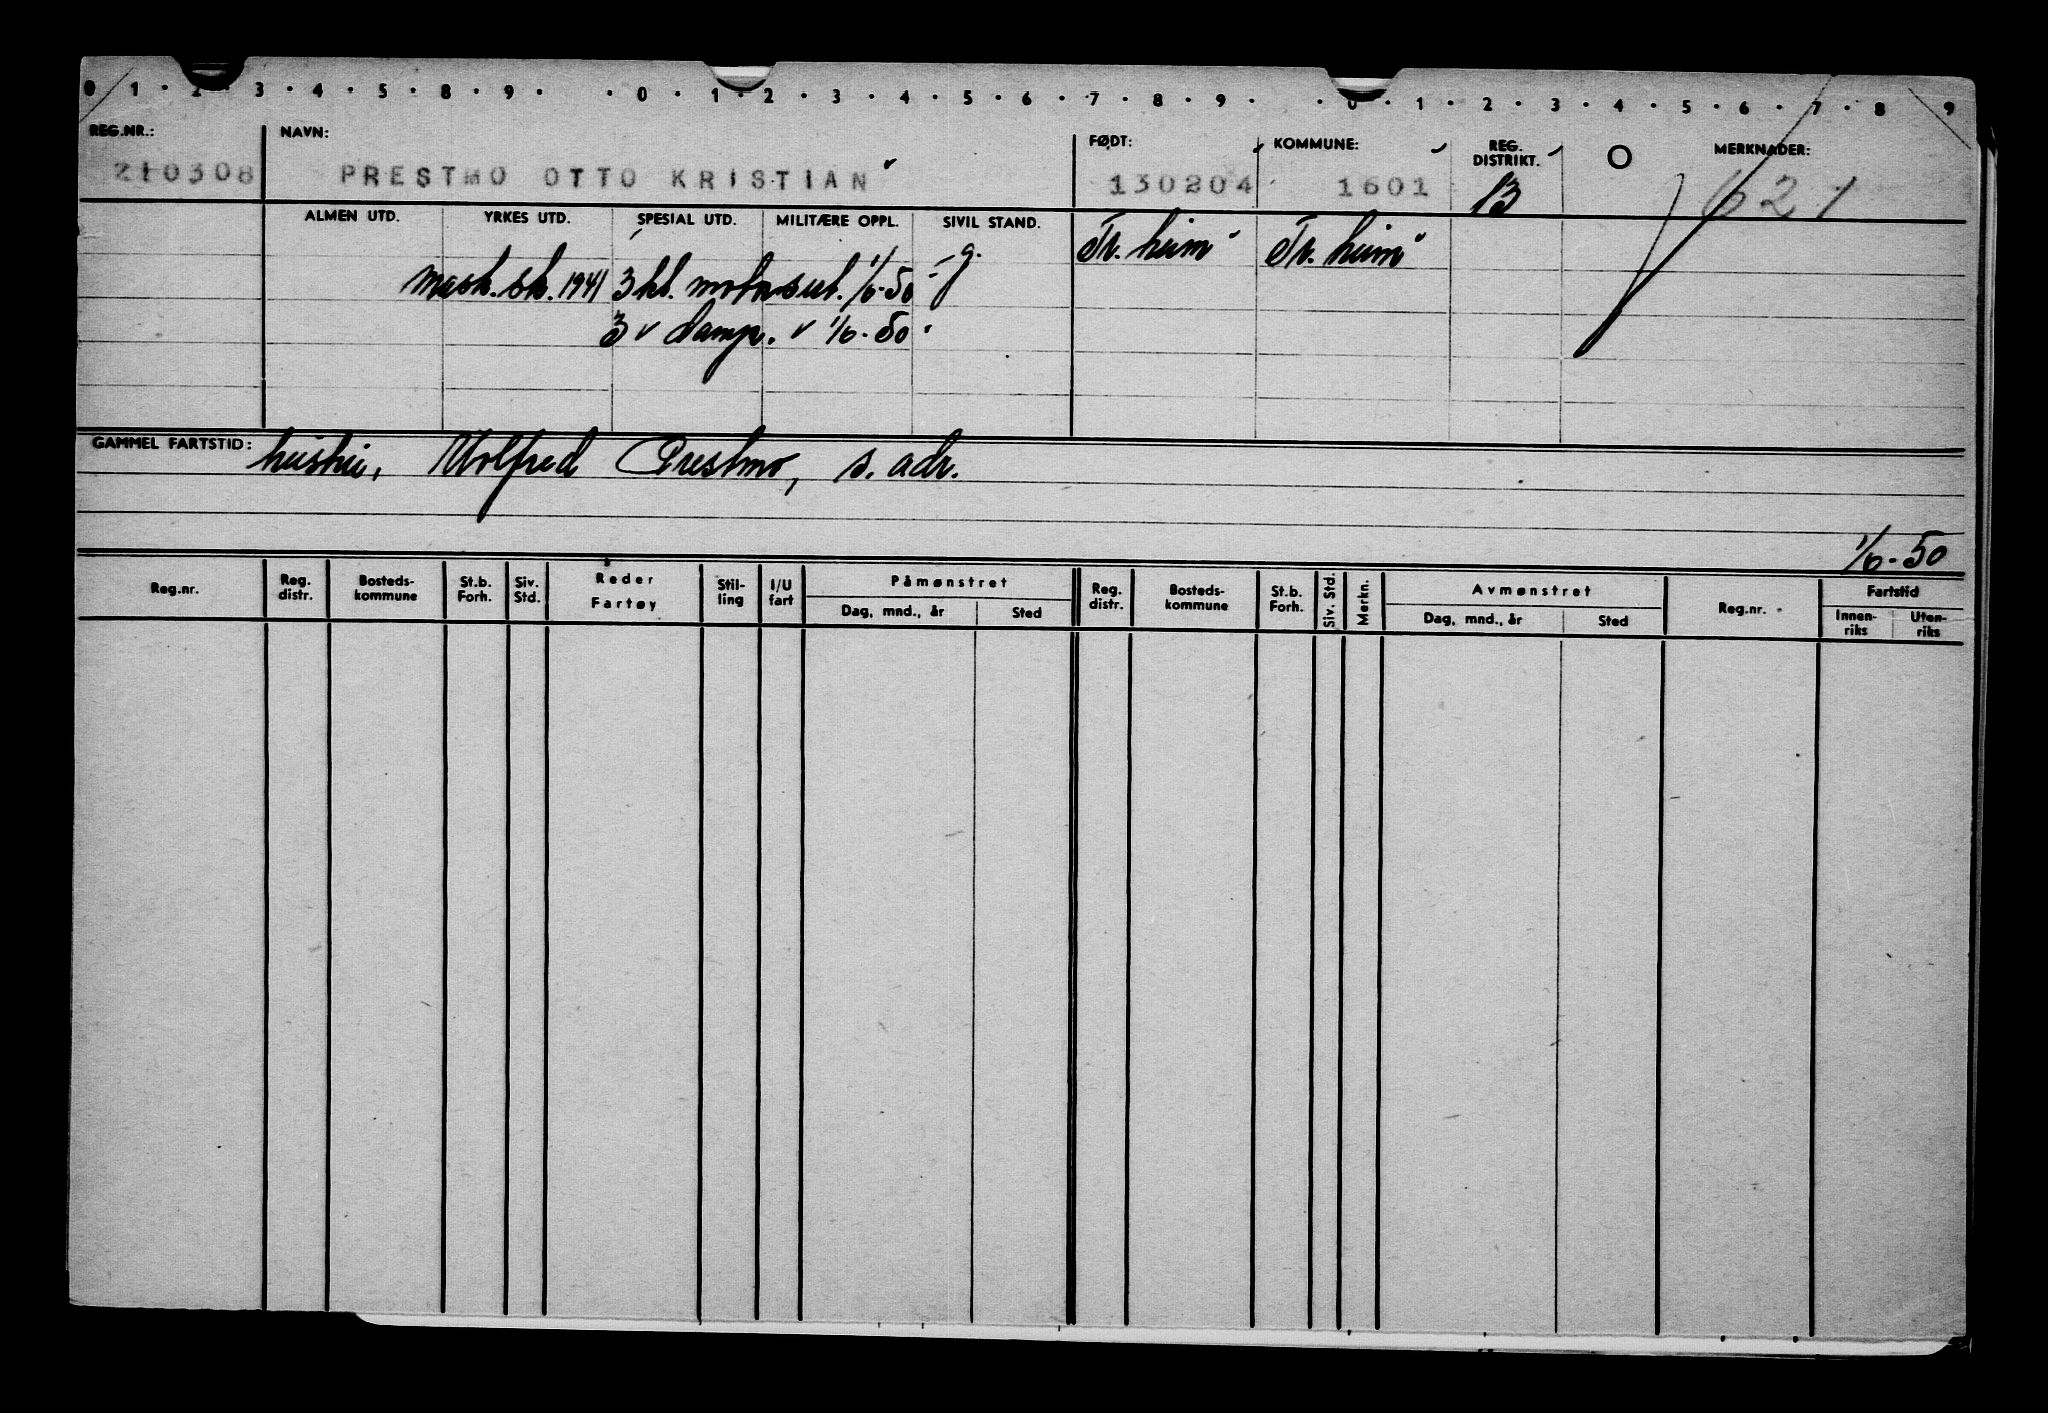 0 1 · 2 · 3 · 4 · 5 · 8 · 9 · · 0 · 1 · 2 · 3 · 4 · 5 · 6 · 7 · 8 · 9 · · 0 · 1 · 2 · 3 · 4 · 5 · 6 · 7 · 8 9
REG.NR.: NAVN: FØDT: KOMMUNE: REG. DISTRIKT. MERKNADER:
210308 PRESTMO OTTO KRISTIAN 130204 1601 13 621
ALMEN UTD. YRKES UTD. SPESIAL UTD. MILITÆRE OPPL. SIVIL STAND.
g. Tr. heim Tr. heim
mask. sk. 1941 3 kl. motorsert. 1/6-50
3 " damp. " 1/6-50.
GAMMEL FARTSTID: hustru, Wolfred Prestmo, s. adr.
1/6-50
Reg.nr. Reg. distr. Bosteds-kommune St.b. Forh. Siv. Std. Reder Fartøy Stil-ling I/U fart Påmønstret Reg. distr. Bosteds-kommune St.b. Forh. Siv. Std. Merkn. Avmønstret Reg.nr. Fartstid
Dag, mnd., år Sted Dag, mnd., år Sted Innen-riks Uten-riks